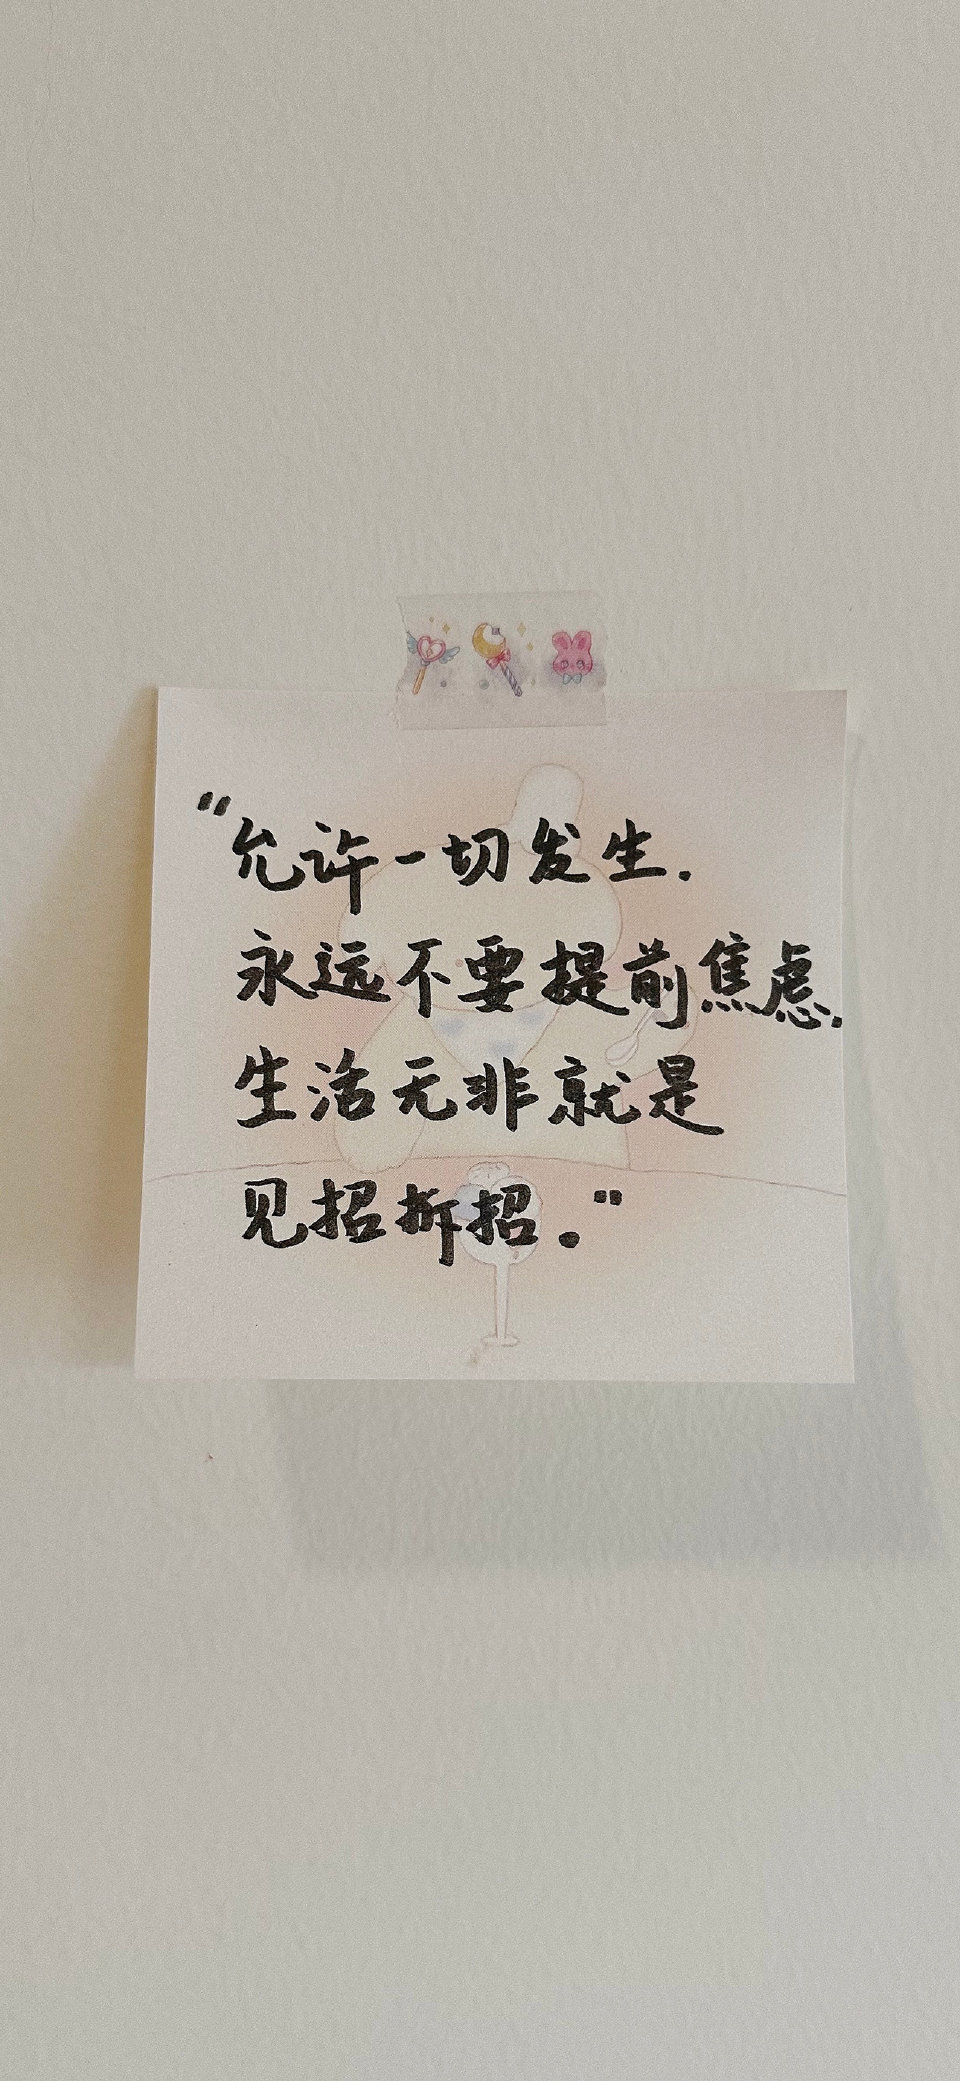 “允许一切发生.
永远不要提前焦虑.
生活无非就是
见招拆招。”